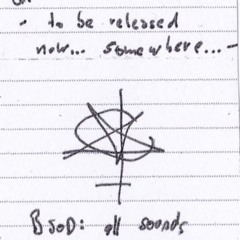 - to be released
now... somewhere...-
BSOD: all sounds